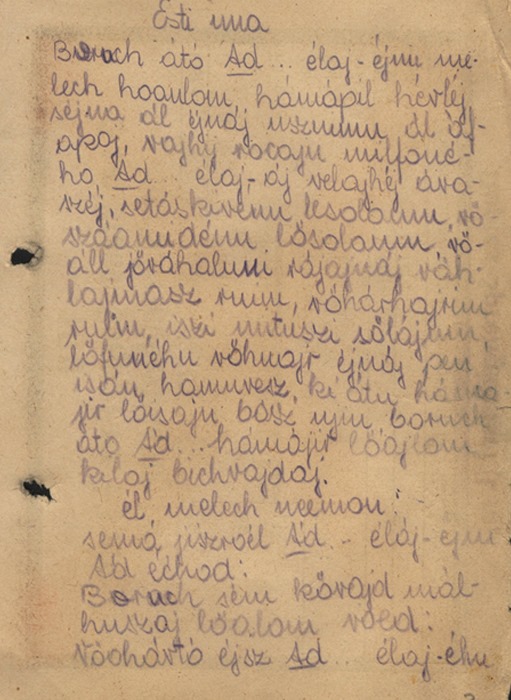 Esti ima
Boruch átó Ad... élaj-éjnu me-
lech hoaulom, hámápil hévléj
séjna ál éjnáj usznumu ál áf-
apoj, vajhij rocajn milfoné-
ho Ad... élaj-áj velajhéj áva-
széj, setáskivénu lesolaum, vö-
száamidénu lösolaum, vö-
áll jöváhaluni rájajnáj váh-
lajmasz ruim, vöhárhajrim
ruim, iszi mituszi sölájmu,
löfunéhu vöhuajr éjnáj pen
isán, hamuvesz, ki átu hámo-
jir löisajn bász ujin boruch
áto Ad... hámájir löájlom
kiloj bichvajdáj.
él melech neemon:
semá jiszroél Ad... éláj-éjnu
Ad échod:
Boruch sém kövajd mál-
huszaj löalom voed:
Vöohávtó éjsz Ad... élaj-éhu